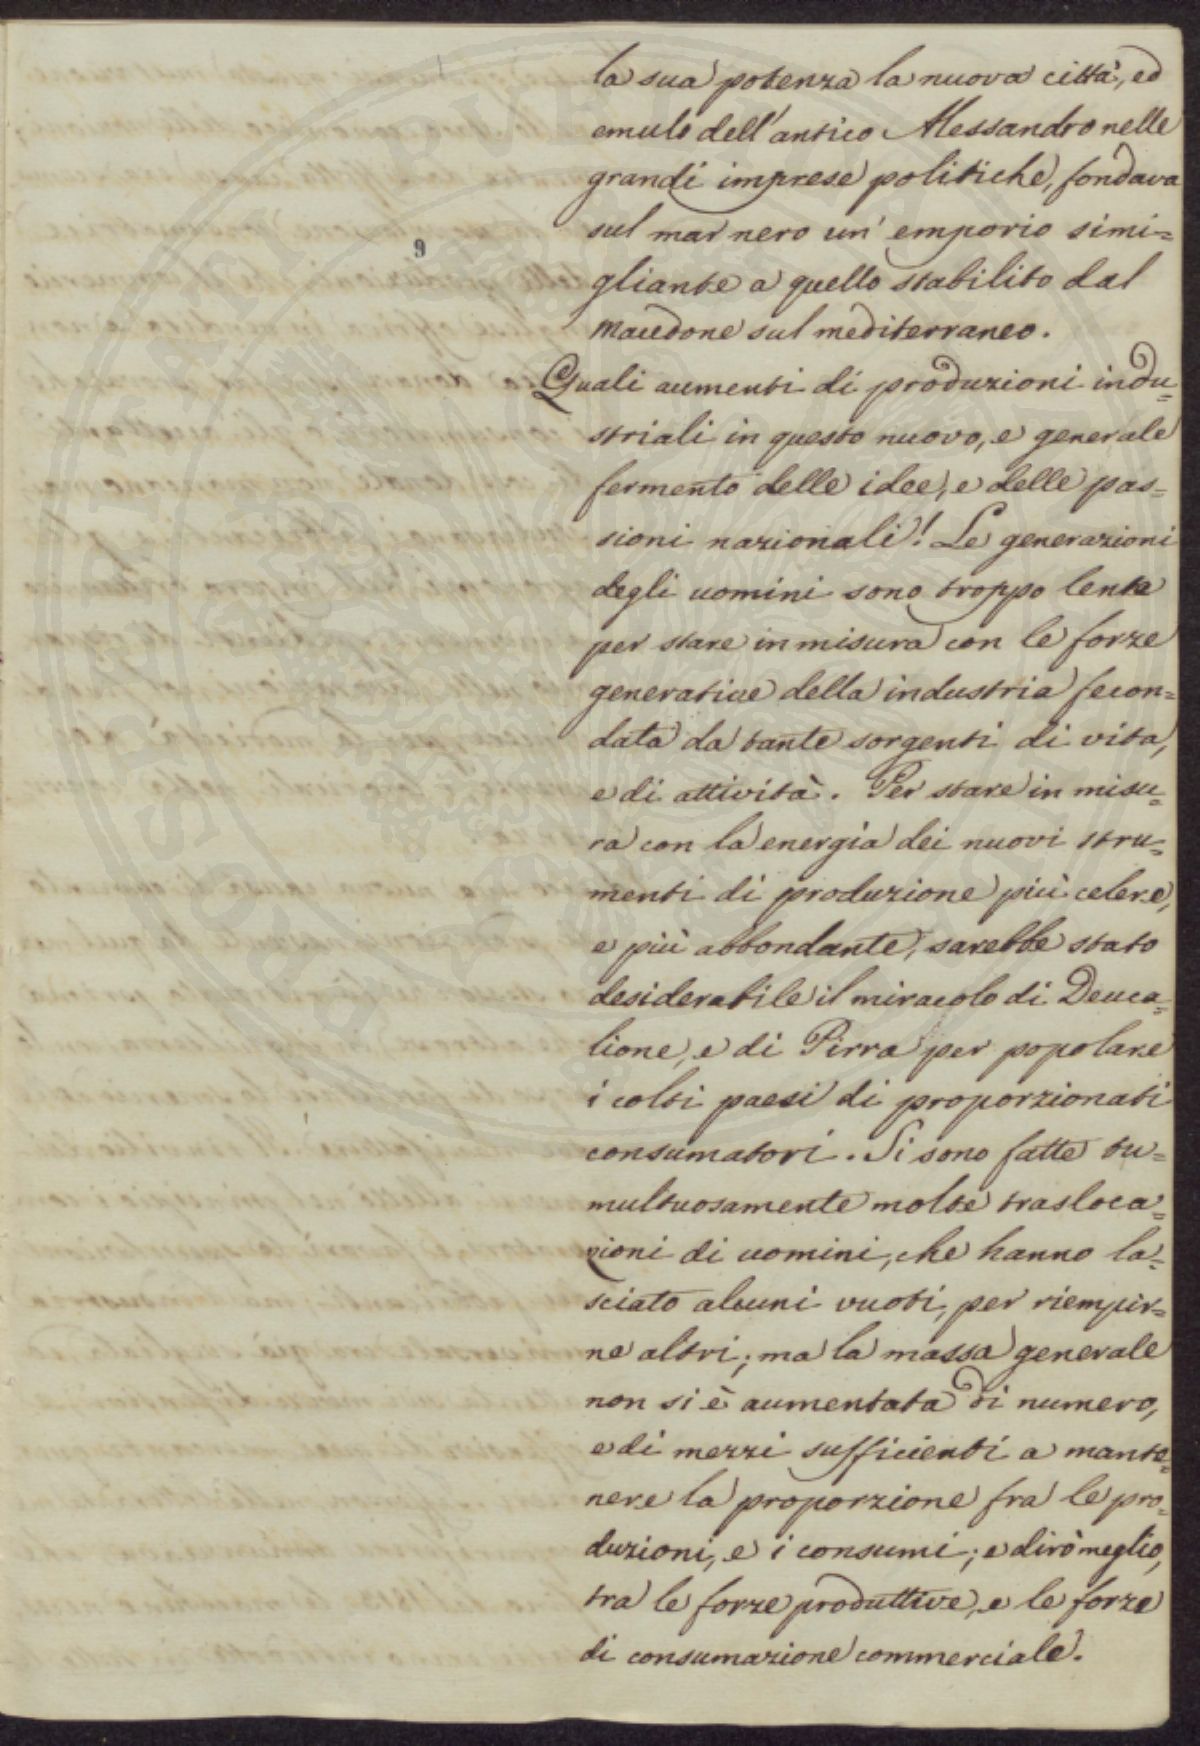 la sua potenza la nuova città, ed
emulo dell'antico Alessandro nelle
grandi imprese politiche, fondava
sul mar nero un' emporio simi=
gliante a quello stabilito dal
Macedone sul mediterraneo.
Quali aumenti di produzioni indu=
striali in questo nuovo, e generale
fermento delle idee, e delle pas=
sioni nazionali! Le generazioni
degli uomini sono troppo lente
per stare in misura con le forze
generative della industria fecon=
data da tante sorgenti di vita,
e di attività. Per stare in misu=
ra con la energia dei nuovi stru=
menti di produzione più celere,
e più abbondante, sarebbe stato
desiderabile il miracolo di Deuca=
lione, e di Pirra per popolare
i colti paesi di proporzionati
consumatori. Si sono fatte tu=
multuosamente molte trasloca=
zioni di uomini, che hanno la=
sciato alcuni vuoti, per riempir=
ne altri; ma la massa generale
non si è aumentata di numero,
e di mezzi sufficienti a mante=
nere la proporzione fra le pro=
duzioni, e i consumi; e dirò meglio,
tra le forze produttive, e le forze
di consumazione commerciale.
9